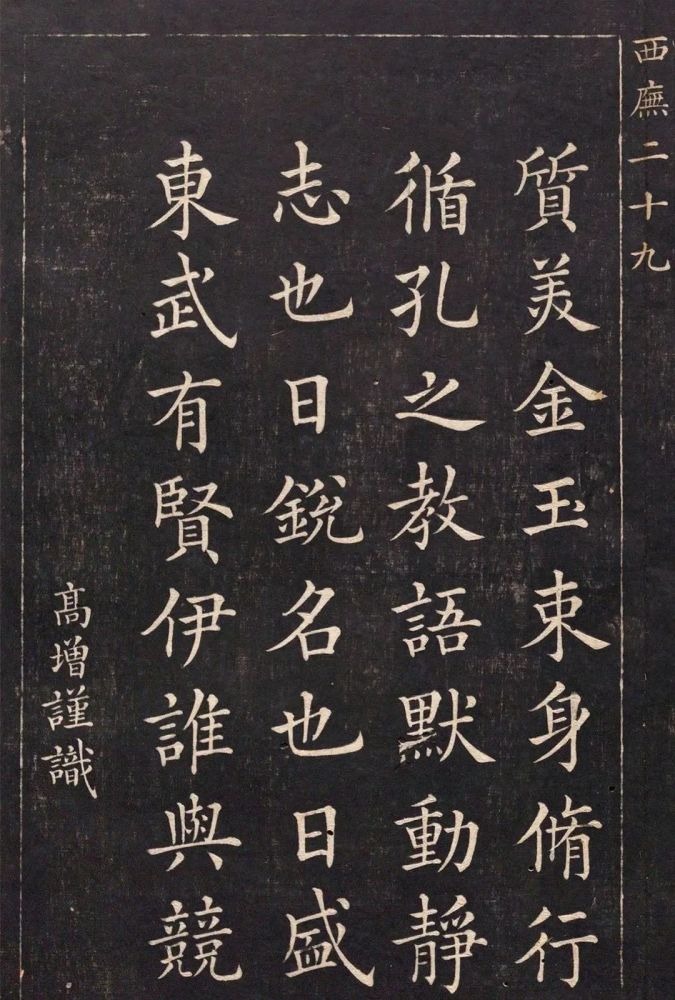 西廡二十九
質美金玉束身脩行
循孔之教語默動靜
志也日銳名也日盛
東武有賢伊誰與競
高增謹識